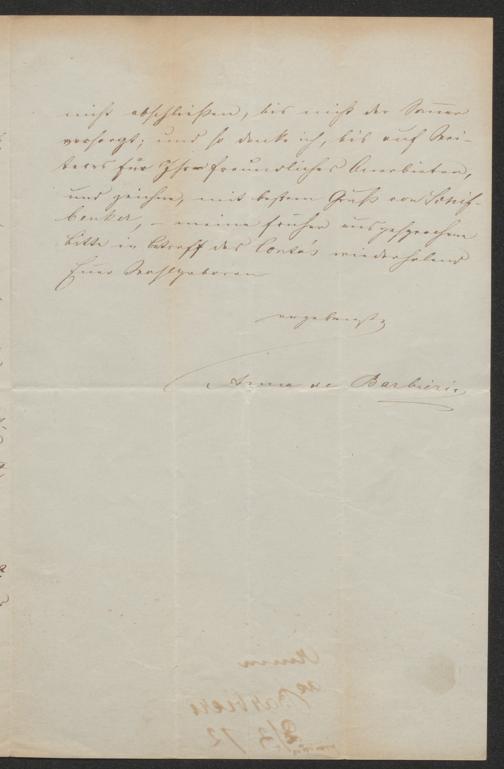 nicht abschließen, bis nicht der
versorgt; und so danke ich, bis auf Wei-
teres für Ihr freundliches Anerbieten,
und zeichne, mit bestem Gruß von
meine früher ausgesprochene
Bitte in betreff des Conto's wiederholend
Euer Wohlgeboren
ergebenste
Anna de Barbieri
Anna
de
Barbieri
2/3 72